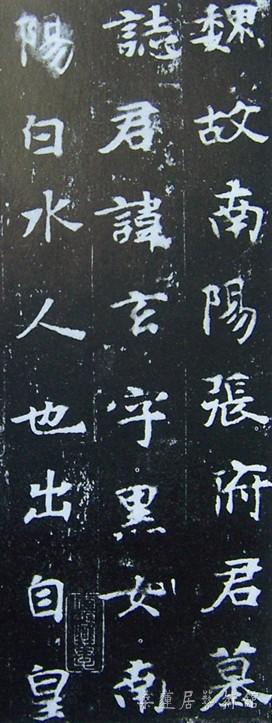 魏故南陽張府君墓
誌君諱玄字黑女南
陽白水人也出自皇